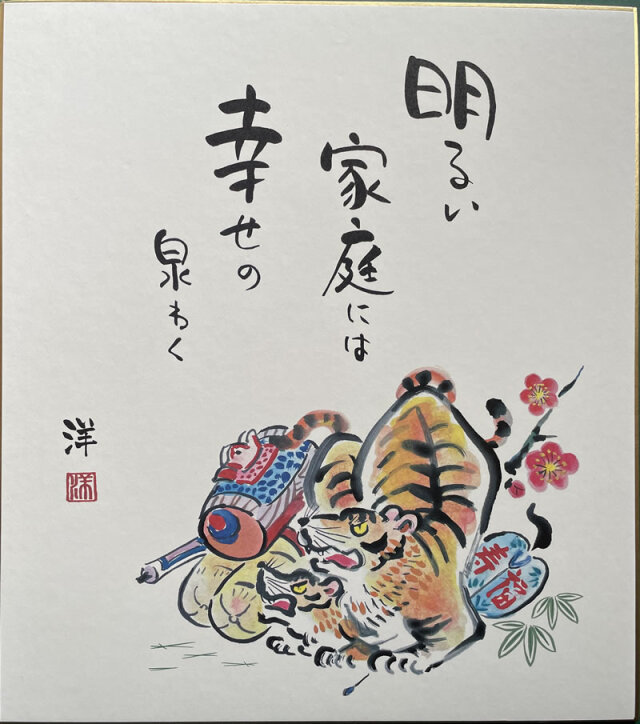 明るい
家庭には
幸せの
泉わく
洋
寿福